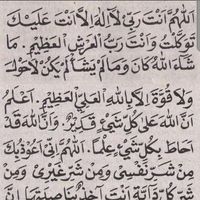 اَللّٰهُمَّ اَنْتَ رَبِّيْ لَآ اِلٰهَ اِلَّا اَنْتَ عَلَيْكَ
تَوَكَّلْتُ وَاَنْتَ رَبُّ الْعَرْشِ الْعَظِيْمِ. مَا
شَآءَ اللّٰهُ كَانَ وَمَا لَمْ يَشَأْ لَمْ يَكُنْ لَاحَوْلَ
وَلَا قُوَّةَ اِلَّا بِاللّٰهِ الْعَلِيِّ الْعَظِيْمِ. اَعْلَمُ
اَنَّ اللّٰهَ عَلٰى كُلِّ شَيْءٍ قَدِيْرٌ. وَاَنَّ اللّٰهَ قَدْ
اَحَاطَ بِكُلِّ شَيْءٍ عِلْمًا. اَللّٰهُمَّ اِنِّيْ اَعُوْذُ بِكَ
مِنْ شَرِّ نَفْسِيْ وَمِنْ شَرِّ غَيْرِيْ وَمِنْ
شَرِّ كُلِّ دَآبَّةٍ اَنْتَ اٰخِذٌ بِنَاصِيَتِهَا اِنَّ